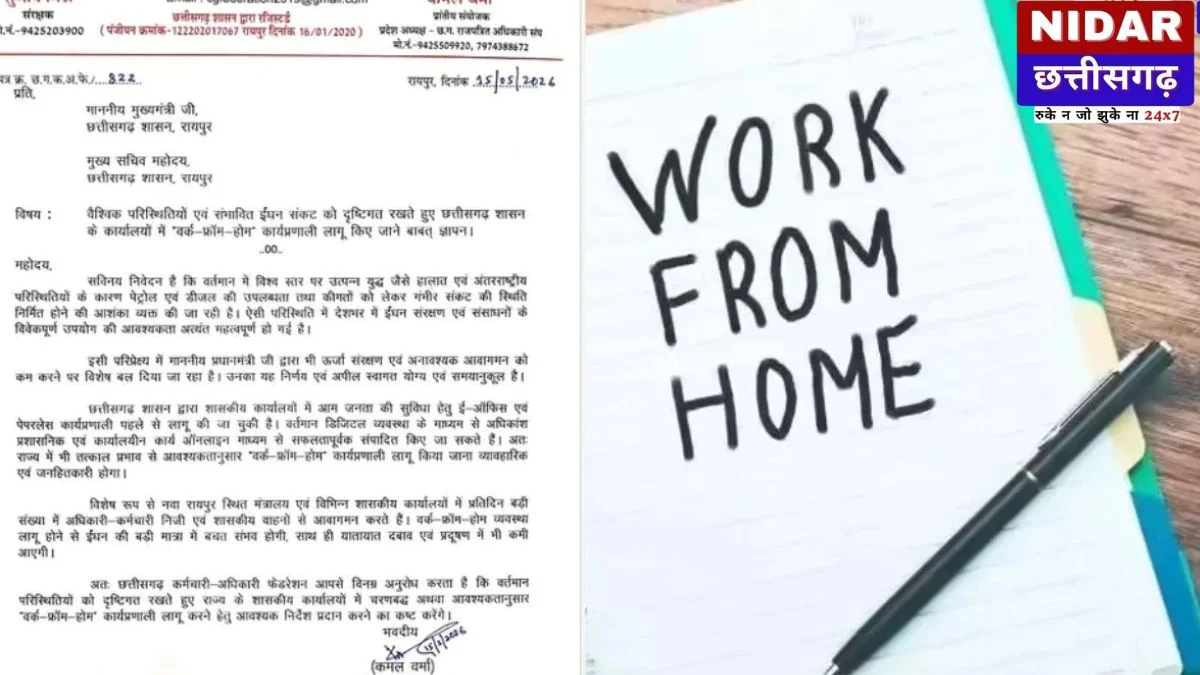 संरक्षक
मो.नं.-9425203900
छत्तीसगढ़ शासन द्वारा रजिस्टर्ड
( पंजीयन क्रमांक-122202017067 रायपुर दिनांक 16/01/2020 )
कमल वर्मा
प्रांतीय संयोजक
प्रदेश अध्यक्ष – छ.ग. राजपत्रित अधिकारी संघ
मो.नं.-9425509920, 7974388672
पत्र क्र. छ.ग.क.अ.फे./....822..
रायपुर, दिनांक .15/05/2026
प्रति,
माननीय मुख्यमंत्री जी,
छत्तीसगढ़ शासन, रायपुर
मुख्य सचिव महोदय,
छत्तीसगढ़ शासन, रायपुर
विषय : वैश्विक परिस्थितियों एवं संभावित ईंधन संकट को दृष्टिगत रखते हुए छत्तीसगढ़ शासन
के कार्यालयों में "वर्क–फ्रॉम–होम" कार्यप्रणाली लागू किए जाने बाबत् ज्ञापन।
..00..
महोदय,
सविनय निवेदन है कि वर्तमान में विश्व स्तर पर उत्पन्न युद्ध जैसे हालात एवं अंतरराष्ट्रीय
परिस्थितियों के कारण पेट्रोल एवं डीजल की उपलब्धता तथा कीमतों को लेकर गंभीर संकट की स्थिति
निर्मित होने की आशंका व्यक्त की जा रही है। ऐसी परिस्थिति में देशभर में ईंधन संरक्षण एवं संसाधनों के
विवेकपूर्ण उपयोग की आवश्यकता अत्यंत महत्वपूर्ण हो गई है।
इसी परिप्रेक्ष्य में माननीय प्रधानमंत्री जी द्वारा भी ऊर्जा संरक्षण एवं अनावश्यक आवागमन को
कम करने पर विशेष बल दिया जा रहा है। उनका यह निर्णय एवं अपील स्वागत योग्य एवं समयानुकूल है।
छत्तीसगढ़ शासन द्वारा शासकीय कार्यालयों में आम जनता की सुविधा हेतु ई–ऑफिस एवं
पेपरलेस कार्यप्रणाली पहले से लागू की जा चुकी है। वर्तमान डिजिटल व्यवस्था के माध्यम से अधिकांश
प्रशासनिक एवं कार्यालयीन कार्य ऑनलाइन माध्यम से सफलतापूर्वक संपादित किए जा सकते है। अतः
राज्य में भी तत्काल प्रभाव से आवश्यकतानुसार "वर्क–फ्रॉम–होम" कार्यप्रणाली लागू किया जाना व्यावहारिक
एवं जनहितकारी होगा।
विशेष रूप से नवा रायपुर स्थित मंत्रालय एवं विभिन्न शासकीय कार्यालयों में प्रतिदिन बड़ी
संख्या में अधिकारी–कर्मचारी निजी एवं शासकीय वाहनों से आवागमन करते हैं। वर्क–फ्रॉम–होम व्यवस्था
लागू होने से ईंधन की बड़ी मात्रा में बचत संभव होगी, साथ ही यातायात दबाव एवं प्रदूषण में भी कमी
आएगी।
अतः छत्तीसगढ़ कर्मचारी–अधिकारी फेडरेशन आपसे विनम्र अनुरोध करता है कि वर्तमान
परिस्थितियों को दृष्टिगत रखते हुए राज्य के शासकीय कार्यालयों में चरणबद्ध अथवा आवश्यकतानुसार
"वर्क–फ्रॉम–होम" कार्यप्रणाली लागू करने हेतु आवश्यक निर्देश प्रदान करने का कष्ट करेंगे।
भवदीय
15/5/2026
(कमल वर्मा)
WORK
FROM
HOME
NIDAR
छत्तीसगढ़
रुके न जो झुके ना 24x7